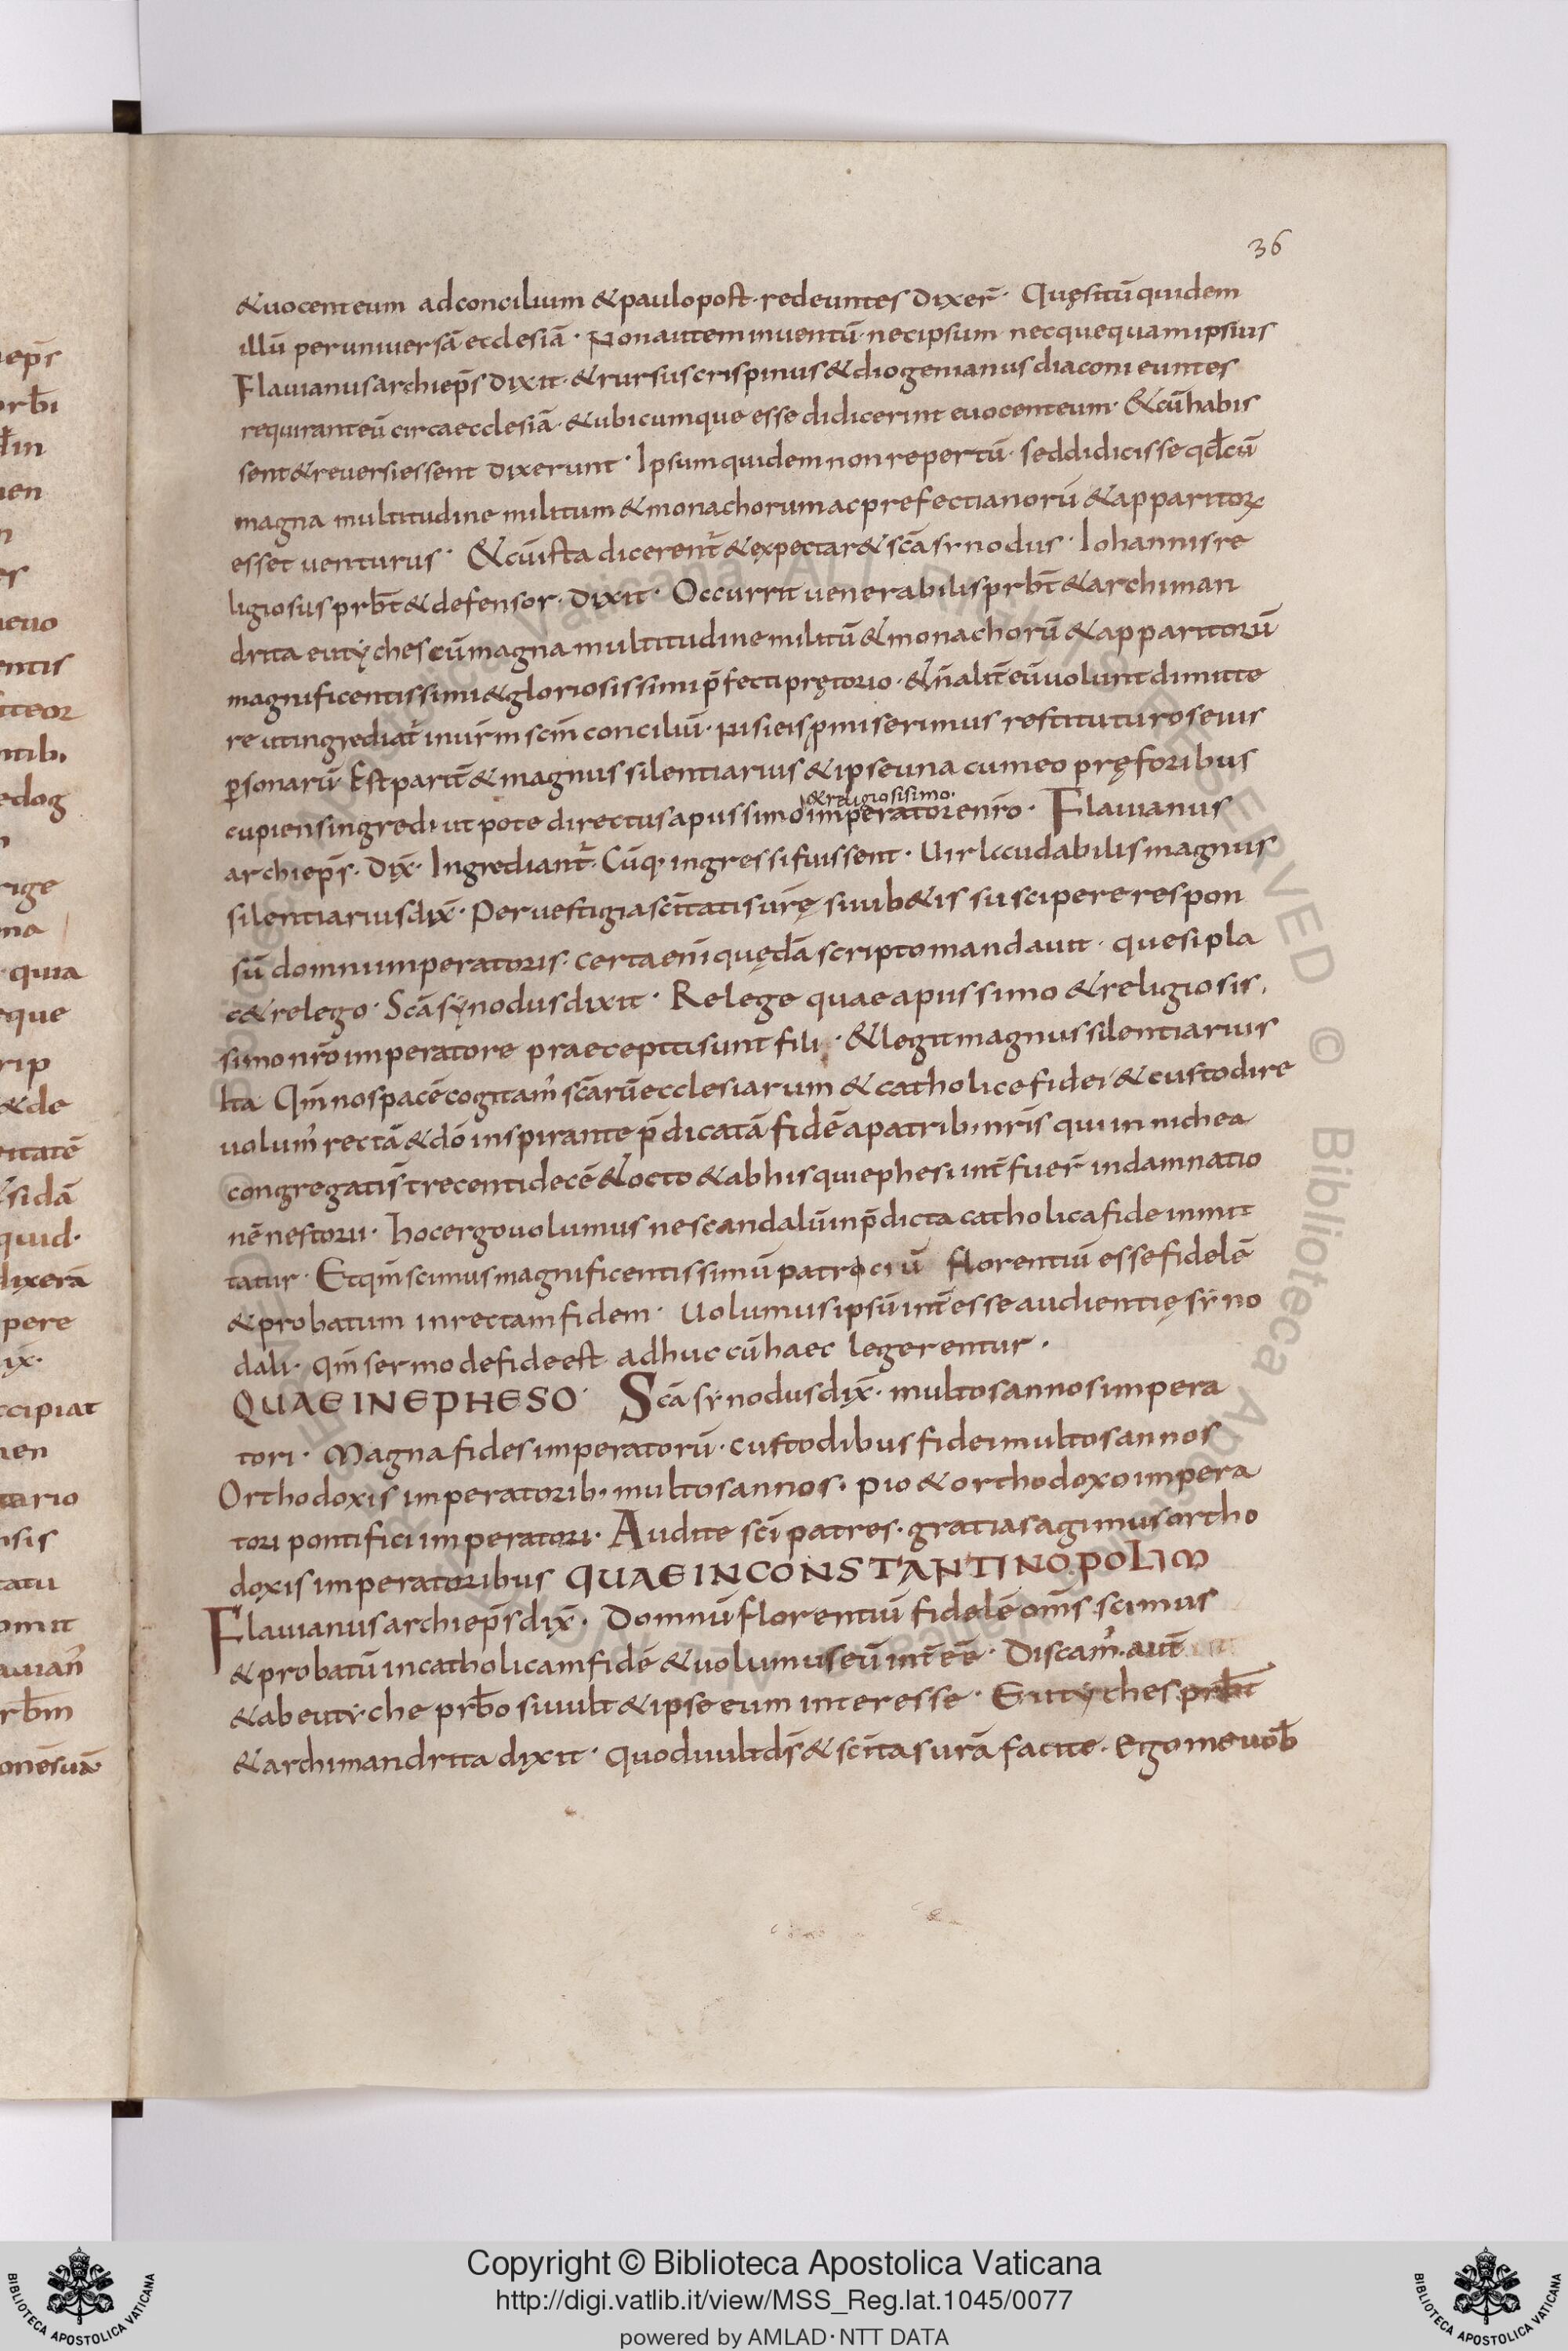 36
&uocent eum ad concilium & paulo post · redeuntes dixer̄ · Quęsitū quidem
illū per uniuersā ecclesiā · Non autem inuentū · nec ipsum nec quequam ipsius
Flauianus archiep̄s dixit · & rursus crispinus & diogenianus diaconi euntes
requirant eū circa ecclesiā · & ubicumque esse didicerint euocent eum · & cū habis
sent & reuersi essent dixerunt · Ipsum quidem non repertū · sed didicisse qđ cū
magna multitudine militum & monachorum ac prefectianorū & apparitoꝝ
esset uenturus · & cū ista dicerent̄ & expectar& scā synodus · Iohannis re
ligiosus prbt̄ & defensor · dixit · Occurrit uenerabilis prbt̄ & archiman
drita eutyches cū magna multitudine militū & monachorū & apparitorū
magnificentissimi & gloriosissimi p̄fecti pretorio · & n̄ alit̄ eū uolunt dimitte
re ut ingrediat̄ in ur̄m scm̄ conciliū · nisi eis ꝓmiserimus restituturos eius
ꝑsonarū Est parit̄ & magnus silentiarius & ipse una cum eo pręforibus
& religiosisimo ·
cupiens ingredi ut pote directus a piissimo imperatore nr̄o · Flauianus
archiep̄s · dix̄ · Ingrediant̄ · Cūq · ingressi fuissent · Uir laudabilis magnus
silentiarius dix̄ · Per uestigia scītatis ur̄ę si iub&is suscipere respon
sū domni imperatoris · certa enī quędā scripto mandauit · que si pla
c& relego · Scā synodus dixit · Relege quae a piissimo & religiosis
simo nr̄o imperatore praecepti sunt fili · & legit magnus silentiarius
Ita Qm̄ nos pacē cogitam̄ scārū ecclesiarum & catholice fidei & custodire
uolum̄ rectā & dō inspirante p̄dicatā fidē a patrib; nr̄is qui in nichea
congregati s̄ trecenti decē & octo & ab his qui ephesi int̄fuer̄ in damnatio
nē nestorii · hoc ergo uolumus ne scandalū in p̄dicta catholica fide inmit
tatur · Et qm̄ scimus magnificentissimū patrociū florentiū esse fidelē
& probatum in rectam fidem · Uolumus ipsū int̄esse audientię syno
dali · qm̄ sermo de fide est adhuc cū haec legerentur ·
QUAE IN EPHESO · Scā synodus dix̄ · multos annos impera
tori · Magna fides imperatorū · custodibus fidei multos annos
Orthodoxis imperatorib; multos annos · pio & orthodoxo impera
tori pontifici imperatori · Audite scī patres · gratias agimus ortho
doxis imperatoribus QUAE IN CONSTANTINOPOLIM
Flauianus archiep̄s dix̄ · Domnū florentiū fidelē om̄s scimus
& probatū in catholicam fidē & uolumus eū int̄ eē · Discam̄ · aut̄
& ab eutyche prb̄o si uult & ipse eum interesse · Eutyches prbt̄
& archimandrita dixit · quod uult ds̄ & scīta s urā facite · Ego me uob̄